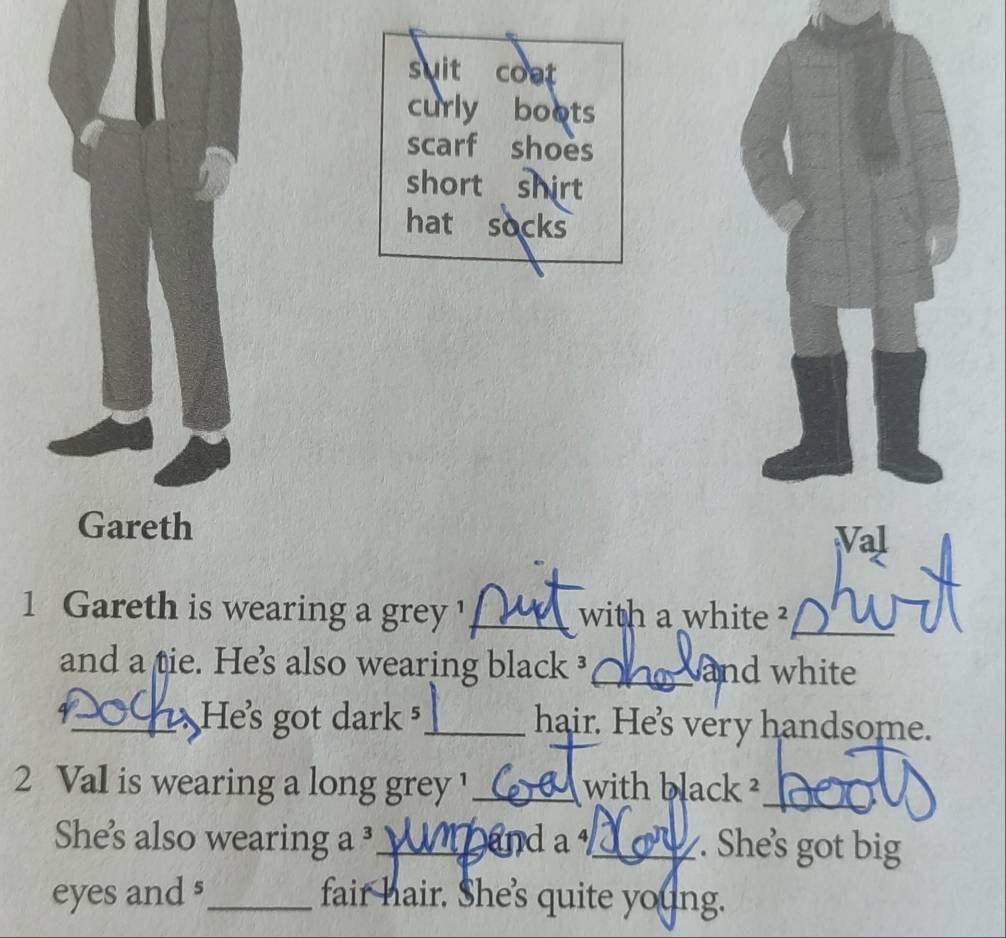 suit coat
curly boots
scarf shoes
short shirt
hat socks
Gareth
Val
1 Gareth is wearing a grey ¹ suit with a white ² shirt
and a tie. He's also wearing black ³ shoes and white
⁴ socks. He's got dark ⁵ ______ hair. He's very handsome.
2 Val is wearing a long grey ¹ coat with black ² boots
She's also wearing a ³ jumper and a ⁴ scarf. She's got big
eyes and ⁵ ______ fair hair. She's quite young.